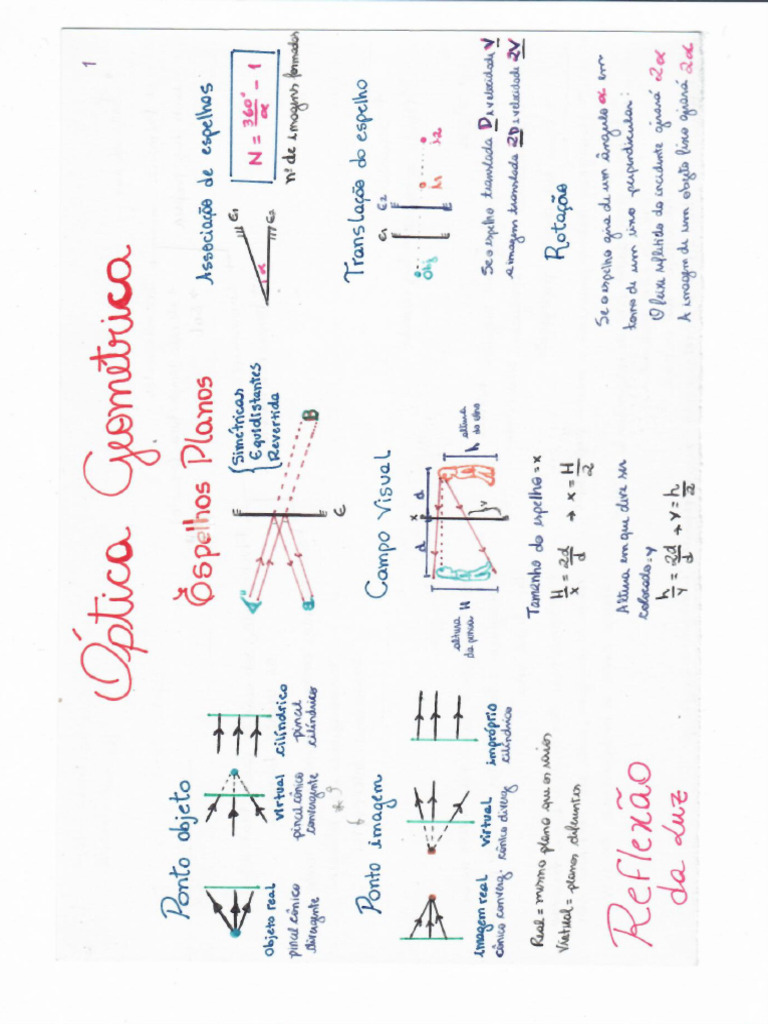 1
Óptica Geométrica
Reflexão
da Luz
Ponto objeto
objeto real
pincel cônico
divergente
virtual
pincel cônico
convergente
cilíndrico
pincel
cilíndrico
Ponto imagem
imagem real
cônico converg.
virtual
cônico diverg.
impróprio
cilíndrico
Real = mesmo plano que os raios
Virtual = planos diferentes
Espelhos Planos
Simétricas
Equidistantes
Revertida
B
E
Campo Visual
d
d
x
altura
da pessoa
H
h
altura
do olho
y
Tamanho do espelho = x
H/x = 2d/d → x = H/2
Altura em que deve ser
colocado = y
h/y = 2d/d → y = h/2
Associação de espelhos
E1
E2
α
N = 360°/α - 1
nº de imagens formadas
Translação do espelho
E1
E2
Obj
i1
i2
Se o espelho translada D à velocidade V
a imagem translada 2D à velocidade 2V
Rotação
Se o espelho gira de um ângulo α em
torno de um eixo perpendicular:
O feixe refletido do incidente girará 2α
A imagem de um objeto fixo girará 2α